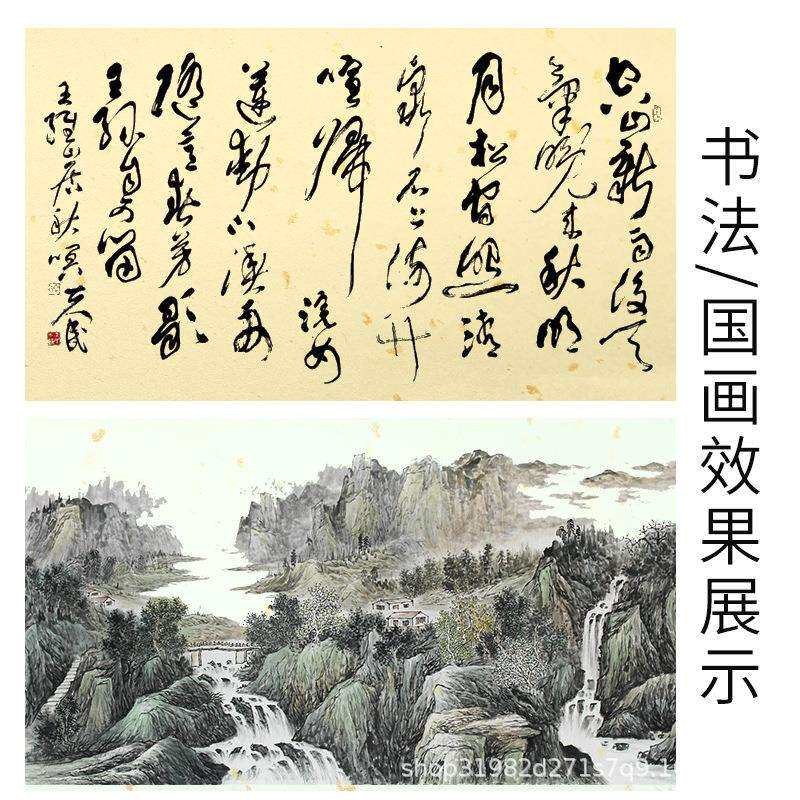 空山新雨後天
氣晚来秋明
月松間照清
泉石上流竹
喧歸浣女
蓮動下漁舟
随意春芳歇
王孫自可留
王維山居秋暝
书法/国画效果展示
shop31982d271s7q9.1